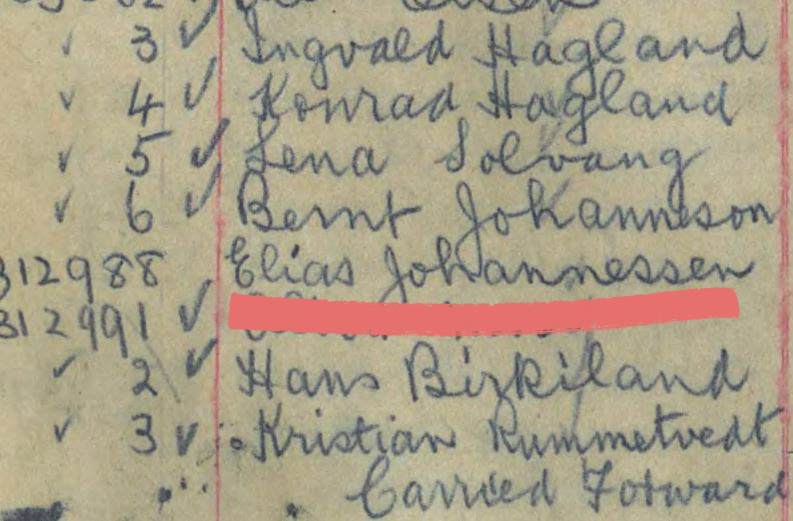 3 ✓ Ingvald Hagland
✓ 4 ✓ Konrad Hagland
✓ 5 ✓ Lena Solvang
✓ 6 ✓ Bernt Johanneson
312988 Elias Johannessen
312991 ✓
✓ 2 ✓ Hans Birkiland
✓ 3 ✓ Kristian Rummetvedt
Carried Forward